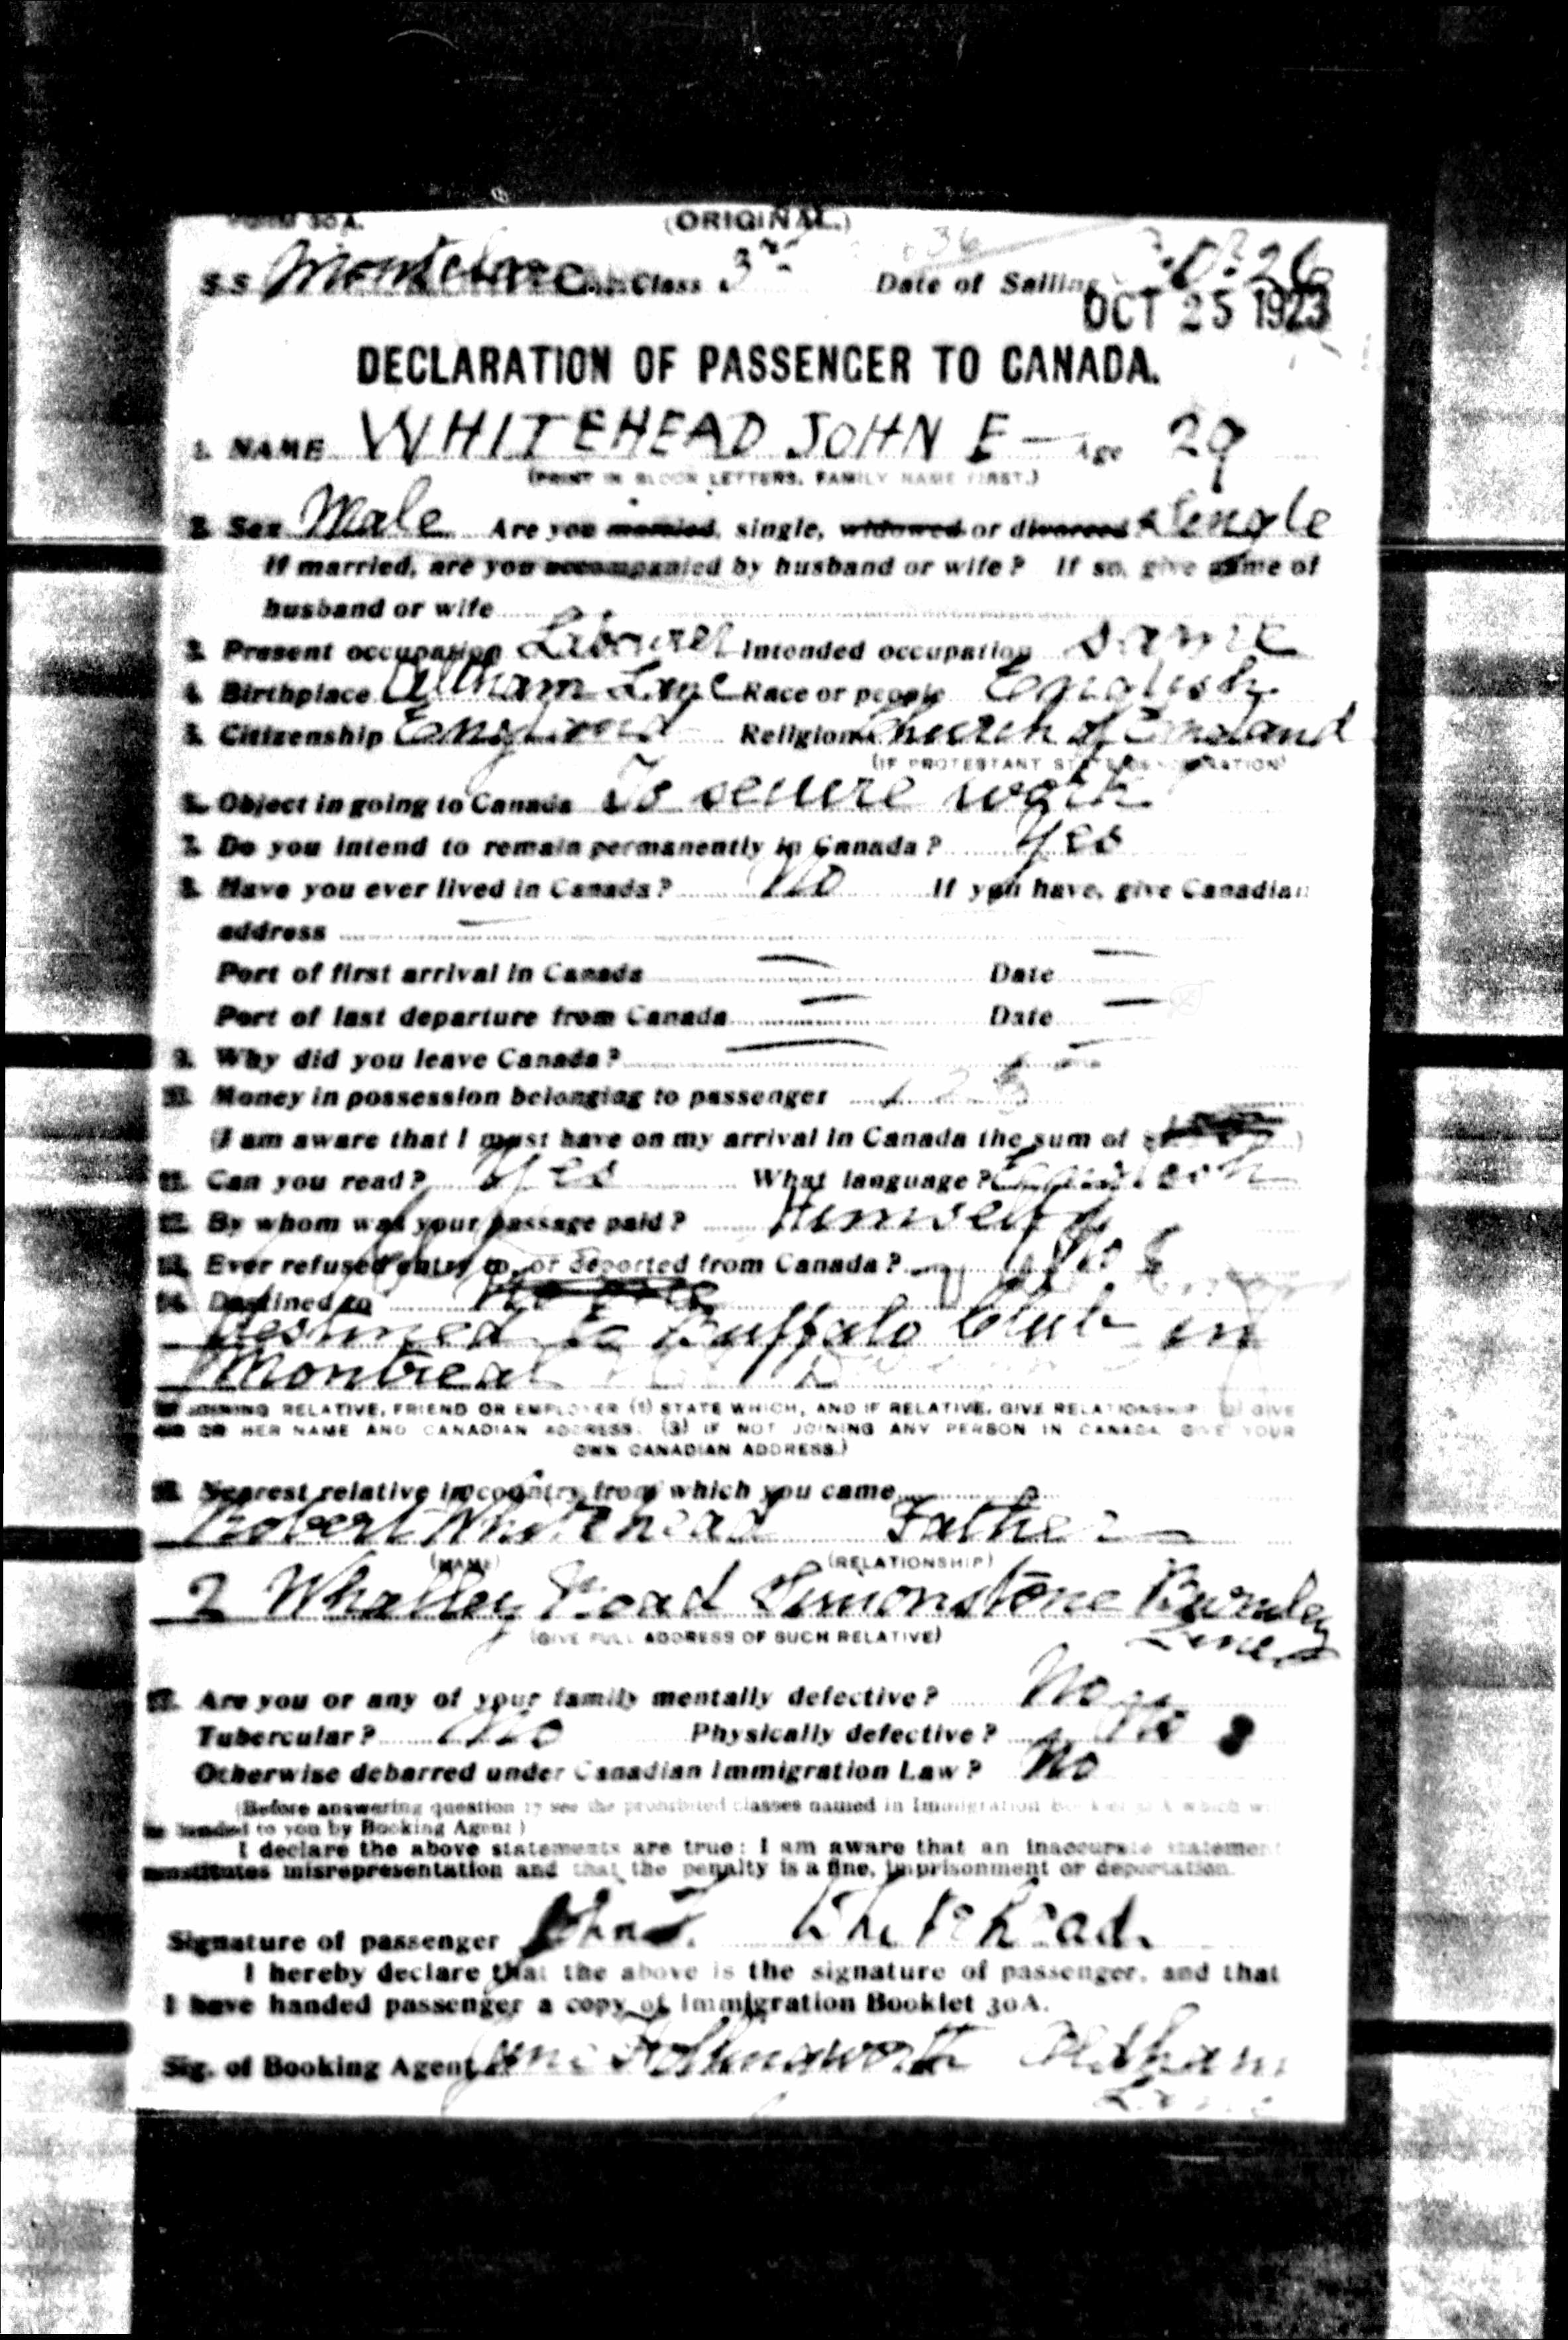 FORM 30A. (ORIGINAL.)
S.S. Montclare Class 3rd Date of Sailing
OCT 25 1923
DECLARATION OF PASSENGER TO CANADA.
1. NAME WHITEHEAD JOHN E — Age 29
(PRINT IN BLOCK LETTERS, FAMILY NAME FIRST.)
2. Sex Male Are you married, single, widowed or divorced Single
If married, are you accompanied by husband or wife? If so, give name of
husband or wife
3. Present occupation Labourer Intended occupation same
4. Birthplace Altham Lane Race or people English
5. Citizenship England Religion Church of England
(IF PROTESTANT STATE DENOMINATION)
6. Object in going to Canada To secure work
7. Do you intend to remain permanently in Canada? Yes
8. Have you ever lived in Canada? No If you have, give Canadian
address —
Port of first arrival in Canada — Date —
Port of last departure from Canada — Date —
9. Why did you leave Canada? —
10. Money in possession belonging to passenger
(I am aware that I must have on my arrival in Canada the sum of )
11. Can you read? Yes What language? English
12. By whom was your passage paid? Himself
13. Ever refused entry to, or deported from Canada? No
14. Destined to
Destined to Buffalo Club in
Montreal
(IF JOINING RELATIVE, FRIEND OR EMPLOYER (1) STATE WHICH, AND IF RELATIVE, GIVE RELATIONSHIP. (2) GIVE
HIS OR HER NAME AND CANADIAN ADDRESS. (3) IF NOT JOINING ANY PERSON IN CANADA GIVE YOUR
OWN CANADIAN ADDRESS.)
Nearest relative in country from which you came
Robert Whitehead Father
(NAME) (RELATIONSHIP)
2 Whalley Road Simonstone Burnley
(GIVE FULL ADDRESS OF SUCH RELATIVE)
17. Are you or any of your family mentally defective? No
Tubercular? No Physically defective? No
Otherwise debarred under Canadian Immigration Law? No
(Before answering question 17 see the prohibited classes named in Immigration Booklet 30A which will
be handed to you by Booking Agent)
I declare the above statements are true: I am aware that an inaccurate statement
constitutes misrepresentation and that the penalty is a fine, imprisonment or deportation.
Signature of passenger John E. Whitehead.
I hereby declare that the above is the signature of passenger, and that
I have handed passenger a copy of Immigration Booklet 30A.
Sig. of Booking Agent Hollingworth